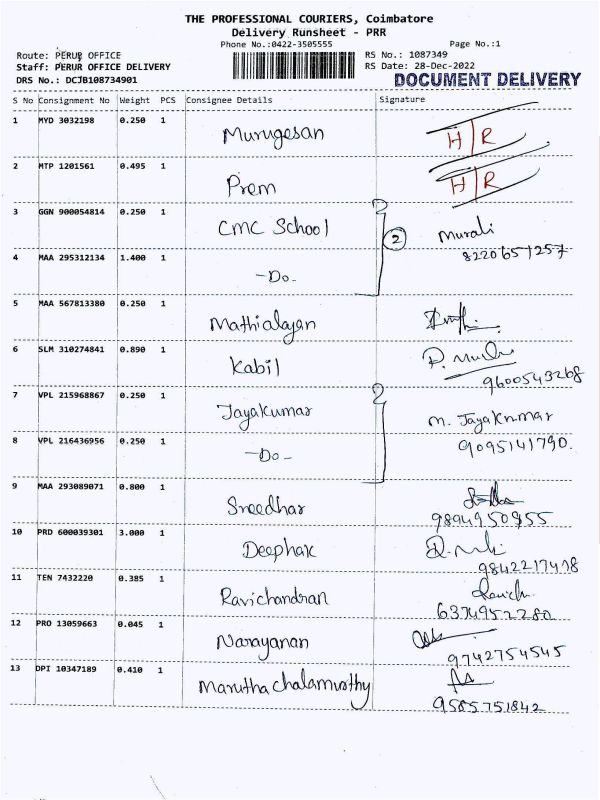 THE PROFESSIONAL COURIERS, Coimbatore
Delivery Runsheet - PRR
Phone No.:0422-3505555 Page No.:1
Route: PERUR OFFICE RS No.: 1087349
Staff: PERUR OFFICE DELIVERY RS Date: 28-Dec-2022
DRS No.: DCJB108734901 DOCUMENT DELIVERY
S No Consignment No Weight PCS Consignee Details Signature
1 MYD 3032198 0.250 1 Murugesan H/R
2 MTP 1201561 0.495 1 Prem H/R
3 GGN 900054814 0.250 1 CMC School 2 Murali
8220651257
4 MAA 295312134 1.400 1 -Do-
5 MAA 567813380 0.250 1 Mathialagan
6 SLM 310274841 0.890 1 Kabil
9600543268
7 VPL 215968867 0.250 1 Jayakumar M. Jayakumar
9095141790.
8 VPL 216436956 0.250 1 -Do-
9 MAA 293089071 0.800 1 Sreedhar
9894950955
10 PRD 600039301 3.000 1 Deephak
9842217418
11 TEN 7432220 0.385 1 Ravichandran
6374952280
12 PRO 13059663 0.045 1 Narayanan
9742754545
13 DPI 10347189 0.410 1 Marutha chalamurthy
9585751842